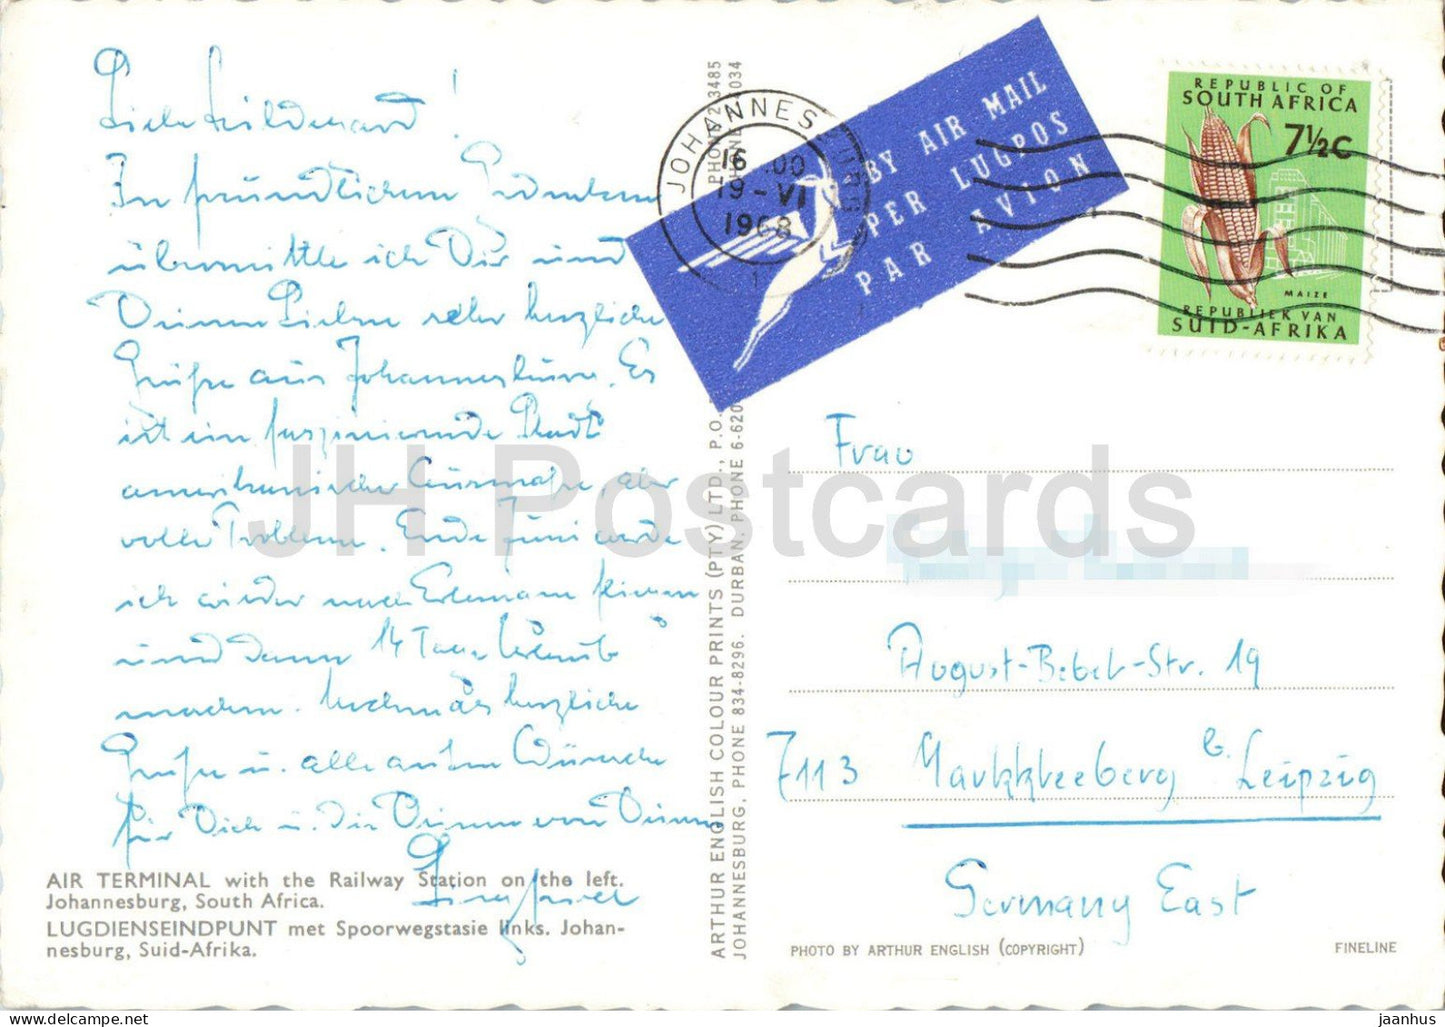 Liebe Hildegard!
In freundlichem Gedenken
übermittle ich Dir und
Deinen Lieben sehr herzliche
Grüße aus Johannesburg. Es
ist eine faszinierende Stadt
amerikanischer, aber
voller Probleme. Ende Juni werde
ich wieder nach fliegen
und dann 14 Tage Urlaub
machen. Nochmals herzliche
Grüße u. alle guten Wünsche
für Dich u. die Deinen von Deinem
AIR TERMINAL with the Railway Station on the left.
Johannesburg, South Africa.
LUGDIENSEINDPUNT met Spoorwegstasie links. Johan-
nesburg, Suid-Afrika.
ARTHUR ENGLISH COLOUR PRINTS (PTY) LTD., P.O.
PHONE 2 3485
JOHANNESBURG, PHONE 834-8296. DURBAN, PHONE 6-620
PHONE 034
JOHANNESBURG
16 00
19-VI
1968
BY AIR MAIL
PER LUGPOS
PAR AVION
REPUBLIC OF
SOUTH AFRICA
7½c
MAIZE
REPUBLIEK VAN
SUID-AFRIKA
Frau
August-Bebel-Str. 19
7113 Markkleeberg b. Leipzig
Germany East
PHOTO BY ARTHUR ENGLISH (COPYRIGHT)
FINELINE
JH Postcards
jaanhus